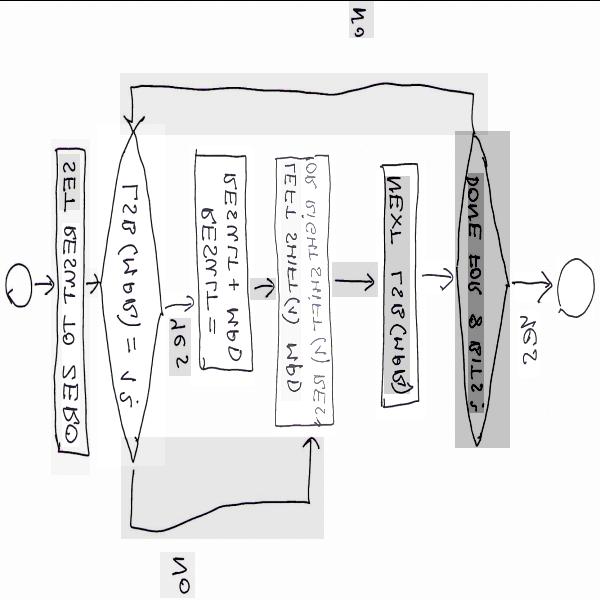 SET RESULT TO ZERO
LSB(MPR) = 1?
YES
NO
RESULT =
RESULT + MPD
LEFT SHIFT (1) MPD
OR RIGHT SHIFT (1)
NEXT LSB(MPR)
DONE FOR 8 BITS?
YES
NO